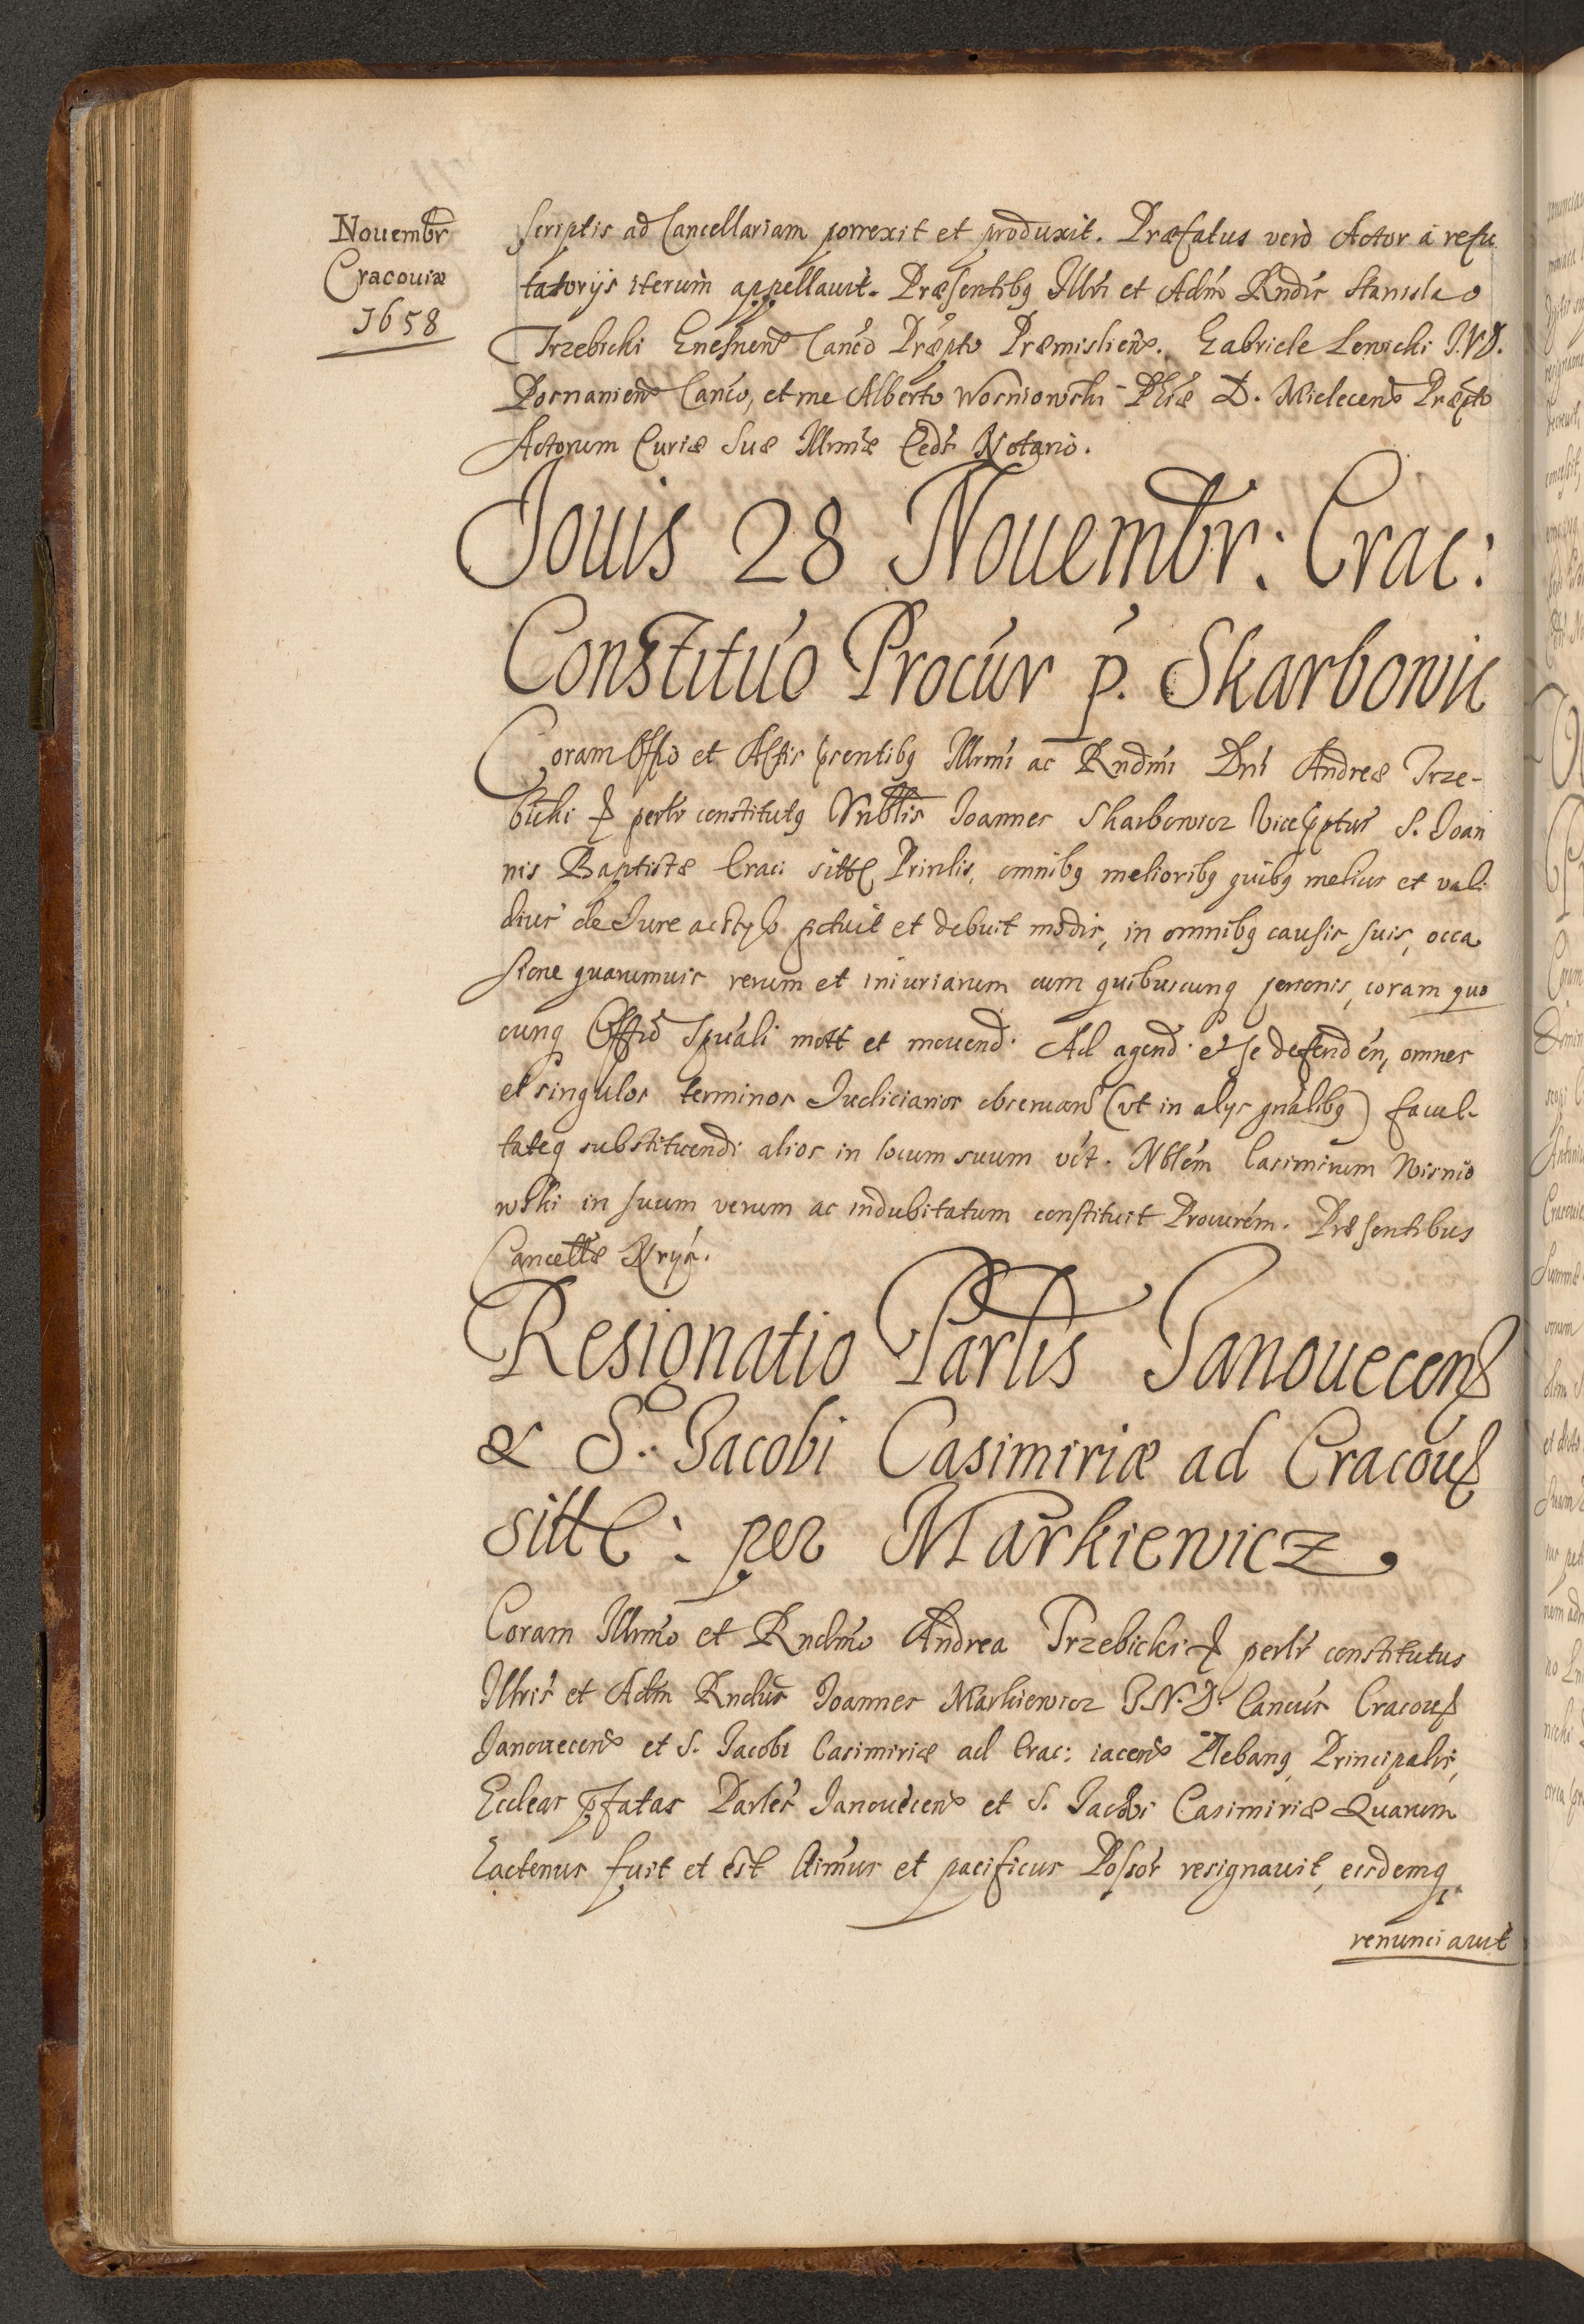 Nouembr
Cracouiæ
1658
scriptis ad Cancellariam porrexit et produxit. Præfatus verò Actor à refu
tatorijs iterum appellauit. Præsentibq Illri et Adm Rndis Stanislao
Trzebicki Gnesnens Canco Præpto Præmisliens. Gabriele Lewicki J.V.D.
Posnaniens Canco, et me Alberto Wosniowski Phiæ D. Mielecens Præpto
Actorum Curiæ Suæ Illrmæ Cels Notario.
Jouis 28 Nouembr: Crac:
Constituo Procur p. Skarbowic
Coram Offo et Actis psentibq Illrmi ac Rndmi Dni Andreæ Trze-
bicki perlr constitutq Vnblis Joannes Skarbowicz Viceptus S. Joan
nis Baptistæ Crac: Prinlis, omnibq melioribq quibq melius et vali
dius de Jure potuit et debuit modis, in omnibq causis suis, occa
sione quarumuis rerum et iniuriarum cum quibuscunq personis, coram quo
cunq Offo Spuali mott et mouend. Ad agend et se defenden, omnes
et singulos terminos Judiciarios obseruand (vt in alys gnalibq) facul-
tateq substituendi alios in locum suum vct. Nblem Casimirum Wisnio
wski in suum verum ac indubitatum constituit Procurem. Præsentibus
Cancellæ Nrys.
Resignatio Partis Janouecens
& S. Jacobi Casimiriæ ad Cracous
sitte: per Markiewicz.
Coram Illrmo et Rndmo Andrea Trzebicki perlr constitutus
Illris et Adm Rndus Joannes Markiewicz J.V.D. Cancus Cracous
Janouecens et S. Jacobi Casimiriæ ad Crac: iacens Plebanq Principalis,
Ecclear pfatas Partes Janouecens et S. Jacobi Casimiriæ Quarum
hactenus fuit et est et pacificus Possor resignauit, eisdemq
renunciauit